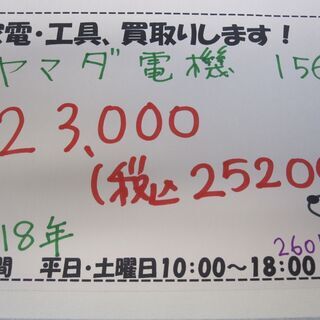 電・工具、買取りします!
ヤマダ電機 156
23,000
(税込2520
18年
2601
間 平日・土曜日10:00～18:00